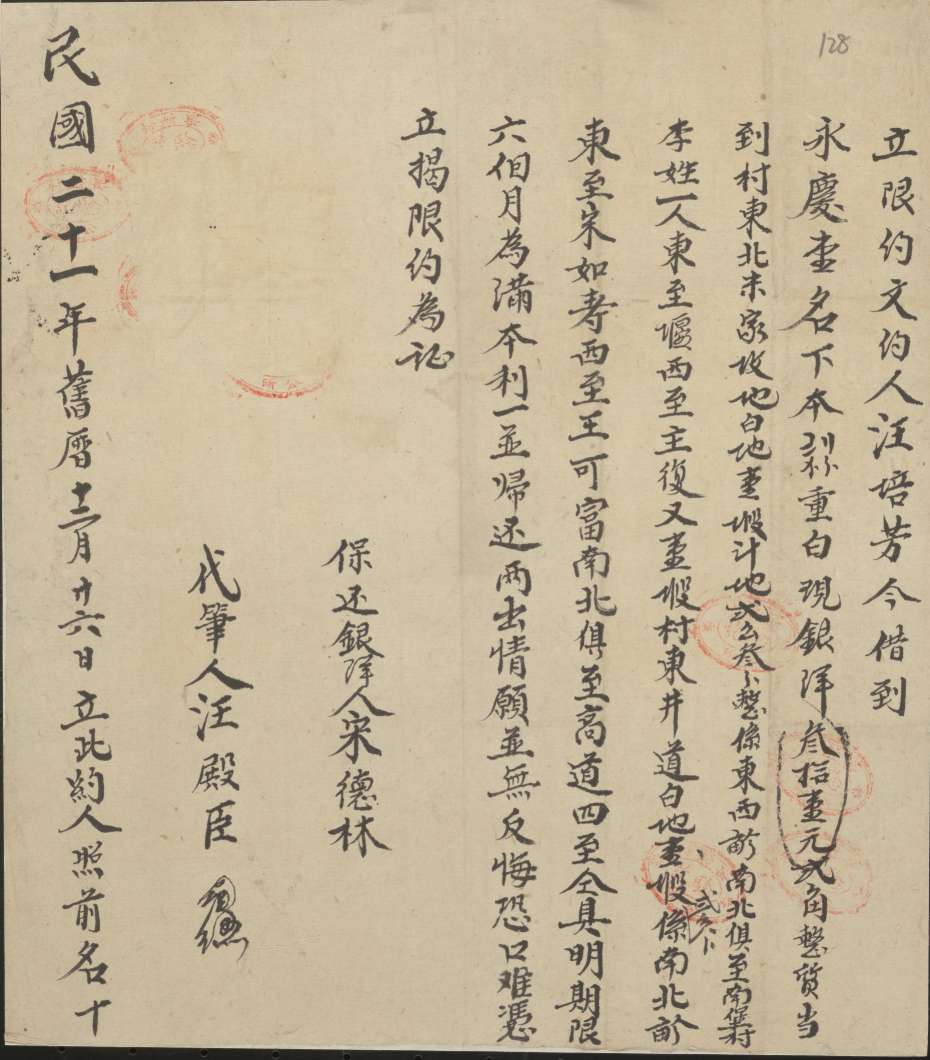 128
立限约文约人汪培芳今借到
永慶堂名下本利重白現銀洋叁拾壹元弍角整質当
到村東北朱家坟地白地壹塅計地弍厶叁卜整係東西畝南北俱至南集村
李姓一人東至堰西至主復又壹塅村東井道白地壹塅係南北畝
弍厶卜
東至宋如寿西至王可富南北俱至高道四至仝具明期限
六佰月為满本利一並帰还两出情願並無反悔恐口难憑
立揭限约為証
保还銀洋人宋德林
代筆人汪殿臣
民國二十一年舊曆十二月廿六日立此約人照前名十